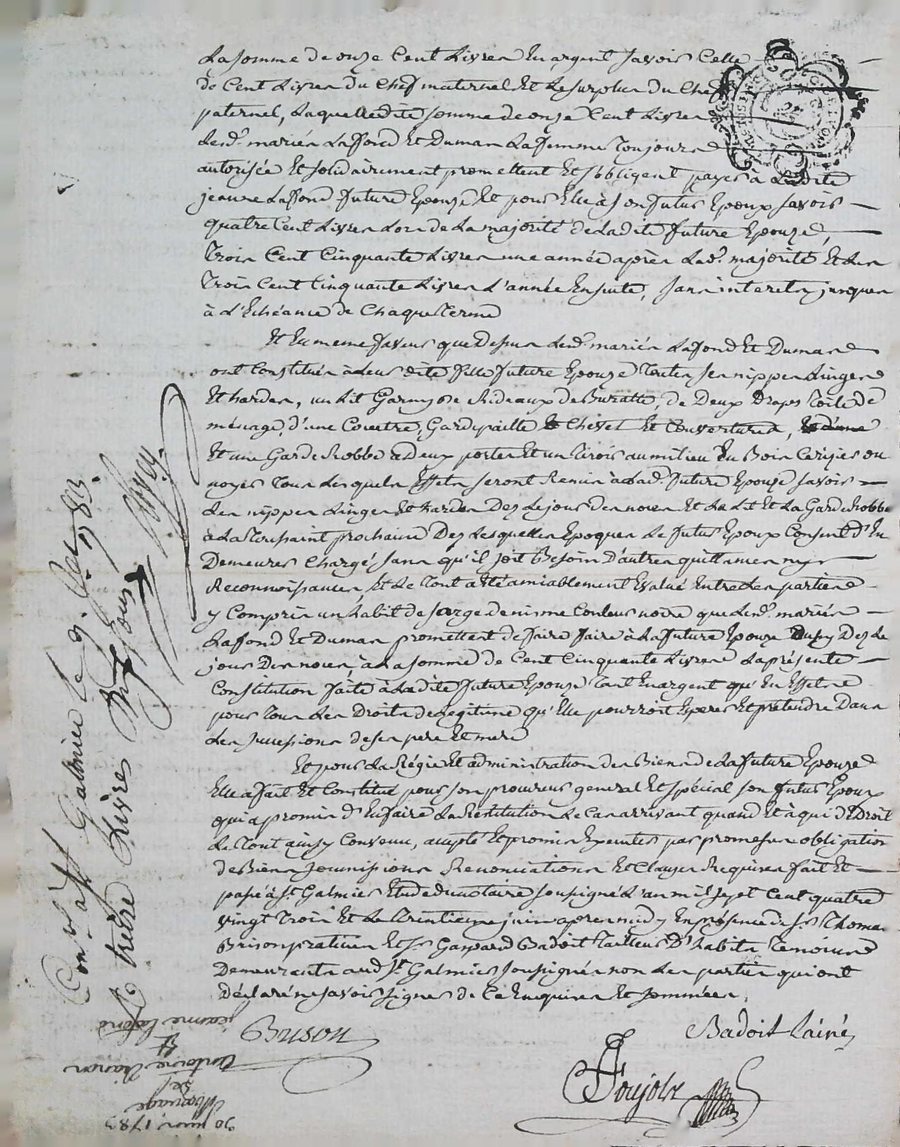 La somme de onze Cent Livres En argent Savoir Celle
de Cent Livres du Chef maternel Et le surplus du Chef
paternel, Laquelle dite somme de onze Cent Livres
Lesd. mariés Laffond Et Dumas La femme Toujours
autorisée Et solidairement promettent Et s'obligent payer à Ladite
jeanne Laffond future Epouze Et pour Elle à son futur Epoux Savoir
quatre Cent Livres Lors de La majorité de Ladite future Epouze,
Trois Cent Cinquante Livres une année après Lad. majorité Et Les
Trois Cent Cinquante Livres L'année Ensuite, Sans interets jusques
à L'Echéance de Chaque Terme
Et En meme faveur que dessus Lesd. mariés Laffond Et Dumas
ont Constitué à leur dite fille future Epouze Toutes Ses nippes Linges
Et hardes, un Lit Garny de Rideaux de Buratte, de Deux Draps Toile de
ménage, d'une Couetre, Gardepaille Chevet Et Couverture,
Et une Garde Robbe à deux portes Et un tiroir au milieu Du Bois Cerizier ou
noyer Tous Lesquels Effets Seront Remis à Lad. future Epouze Savoir
Les nippes Linges Et hardes Dez Le jour des noces Et Le Lit Et La Garde Robbe
à La Toussaint prochaine Dez Lesquelles Epoques Le futur Epoux Consent d'En
Demeurer Chargé sans qu'il soit Besoin D'autre quittance ny
Reconnoissance, Et Le Tout a Eté amiablement Evalué Entre Les parties
y Compris un habit de serge de nisme Couleur noire que Lesd. mariés
Laffond Et Dumas promettent de faire faire à La future Epouze Dez Le
jour Des noces à La somme de Cent Cinquante Livres La présente
Constitution faite à Ladite future Epouze Tant En argent qu'En Effets
pour Tous Les Droits de Légitime qu'Elle pourroit Esperer Et prétendre Dans
Les successions de ses pere Et mere
Et pour La Régie Et administration Des Biens de La future Epouze
Elle a fait Et Constitué pour son procureur general Et spécial son futur Epoux
qui a promis d'En faire La Restitution Le Cas arrivant quand Et à qui de Droit
Le Tout ainsy Convenu, accepté Et promis par promesse obligation
de Biens soumissions Renonciations Et Clauses Requises fait Et
passé à St. Galmier Etude du notaire soussigné L'an mil sept Cent quatre
vingt Trois Et Le Trentieme juin apres midy En présence de Sr. Thomas
Brison praticien Et Sr. Gaspard Badoit Tailleur D'habits Temoins
Demeurants aud. St. Galmier soussignés non Les parties qui ont
Déclaré ne savoir signer de Ce Enquises Et sommées,
Brison
Badoit Lainé
Poujols
à St. Galmier le
Livres
30 juin 1783
Mariage
De
Antoine
Et
jeanne Lafond